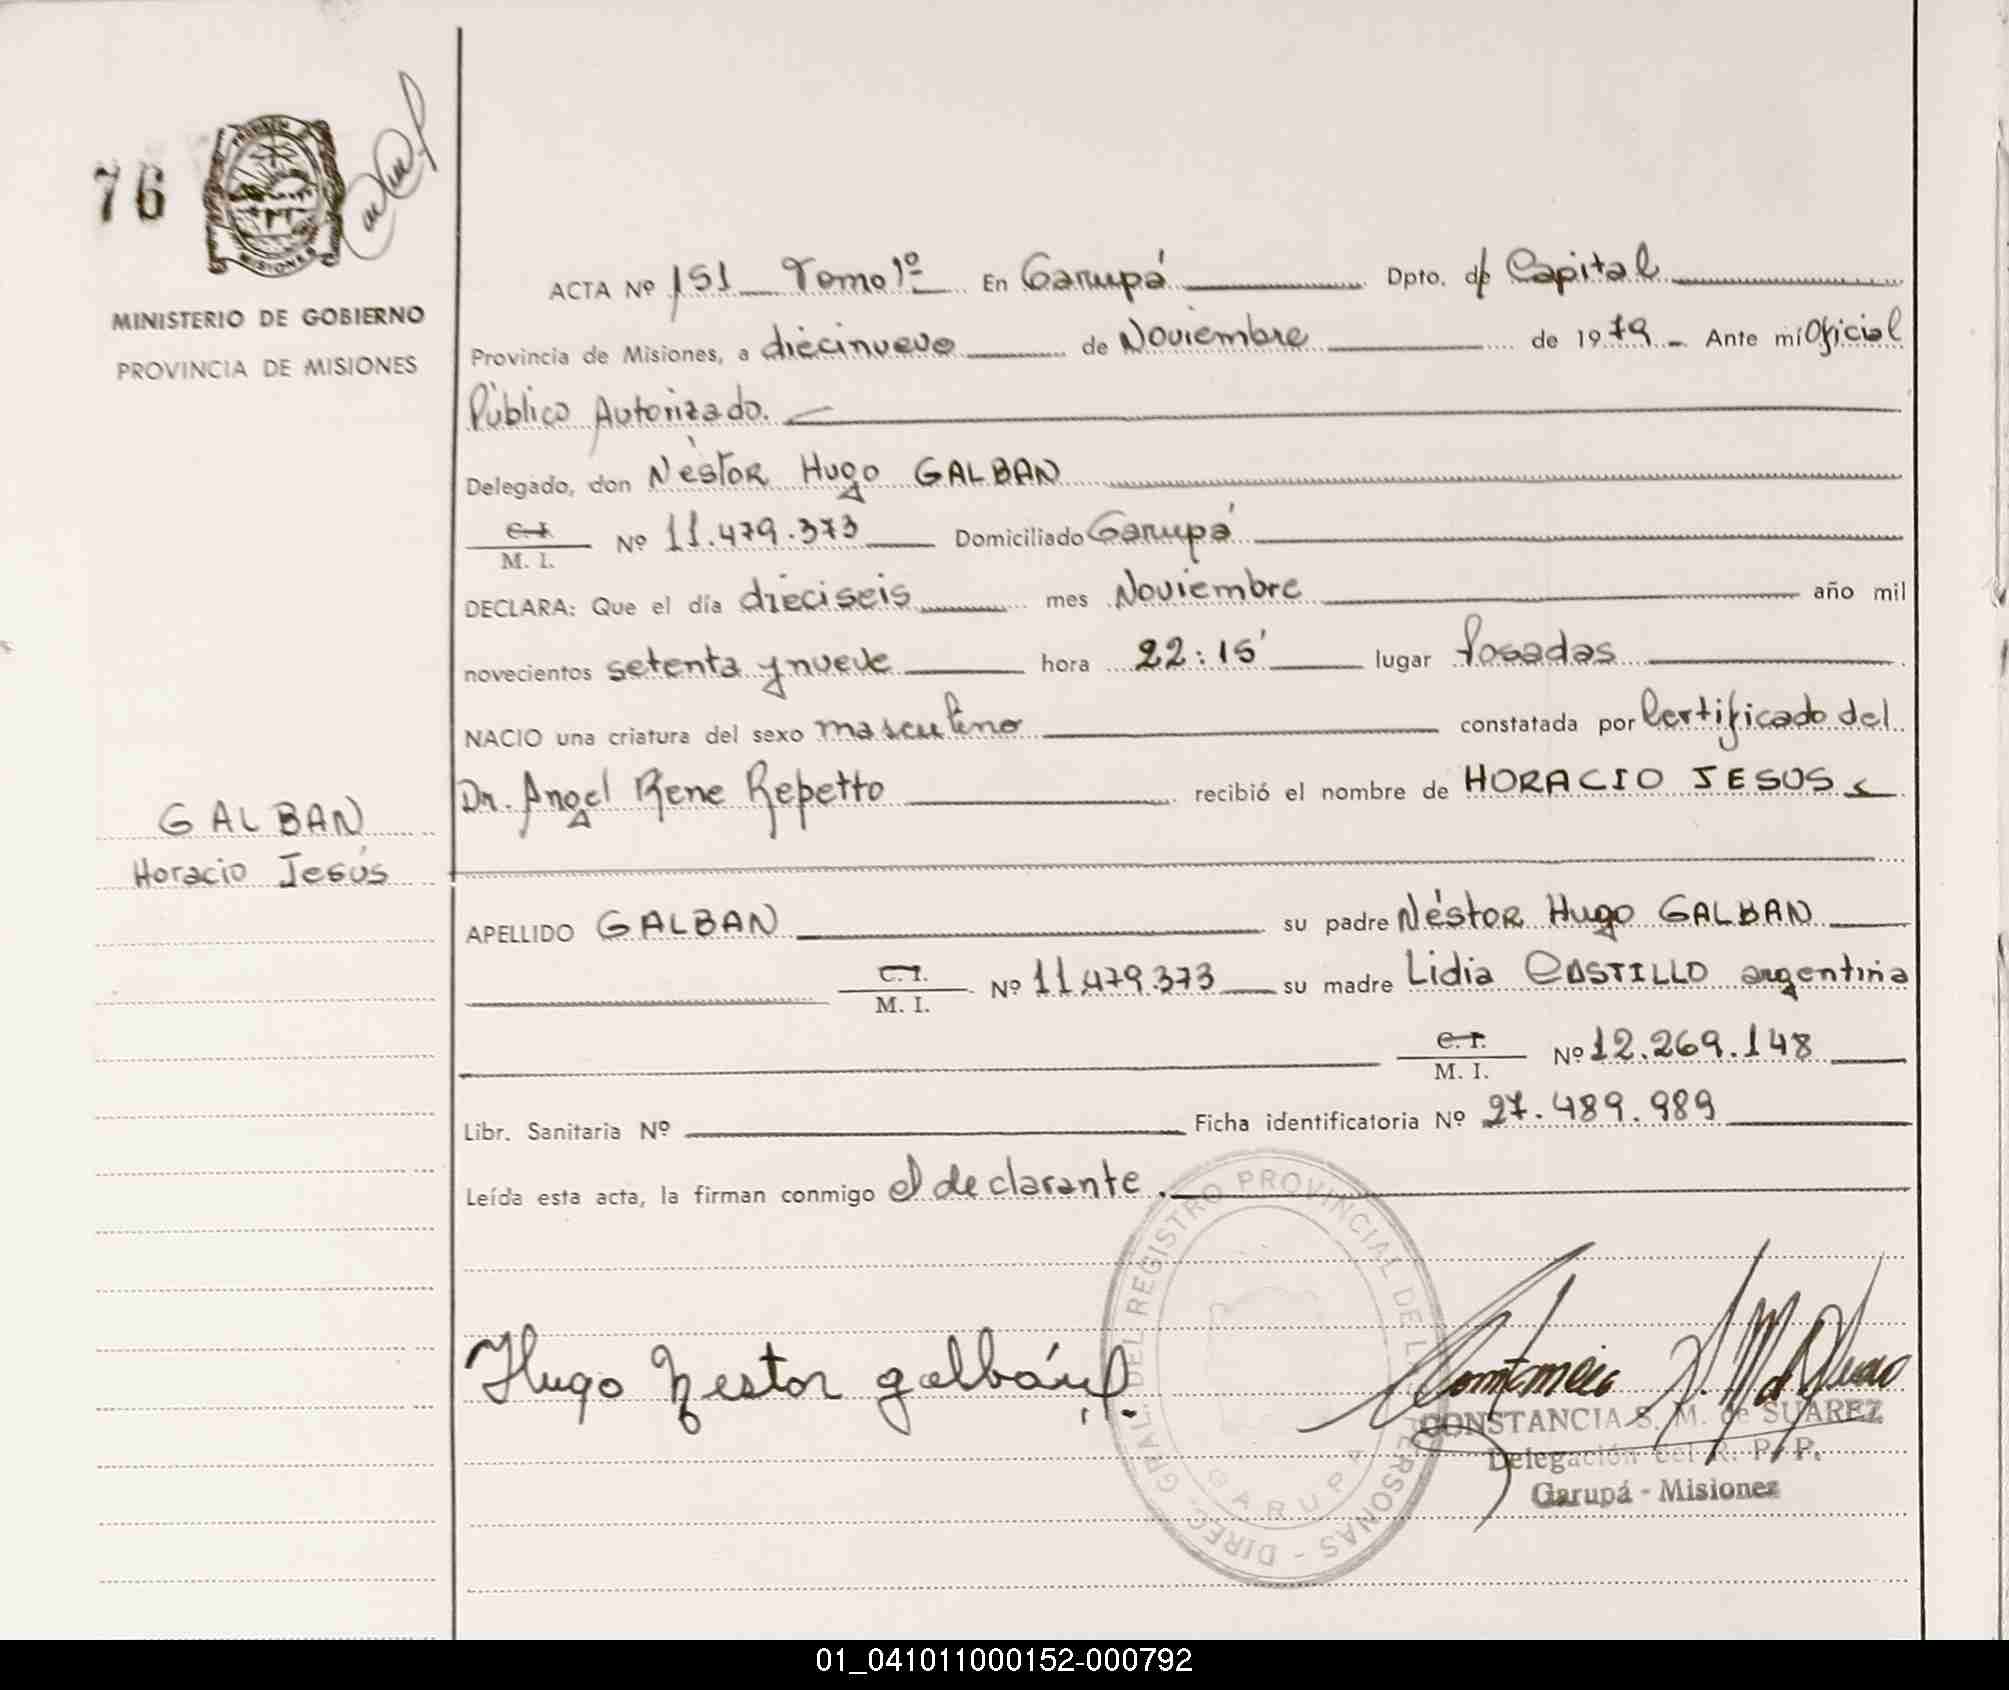 76
MISIONES
MINISTERIO DE GOBIERNO
PROVINCIA DE MISIONES
GALBAN
Horacio Jesús
ACTA Nº 151 Tomo 1º En Garupá Dpto. de Capital
Provincia de Misiones, a diecinueve de Noviembre de 1979 Ante mí Oficial
Público Autorizado.
Delegado, don Néstor Hugo GALBAN
C. I.
M. I. Nº 11.479.373 Domiciliado Garupá
DECLARA: Que el día dieciseis mes Noviembre año mil
novecientos setenta y nueve hora 22:15' lugar Posadas
NACIO una criatura del sexo masculino constatada por Certificado del
Dr. Angel Rene Repetto recibió el nombre de HORACIO JESUS
APELLIDO GALBAN su padre Néstor Hugo GALBAN
C. I.
M. I. Nº 11.479.373 su madre Lidia CASTILLO argentina
C. I.
M. I. Nº 12.269.148
Libr. Sanitaria Nº Ficha identificatoria Nº 27.489.989
Leída esta acta, la firman conmigo el declarante.
Hugo Nestor galbán
DIREC. GRAL. DEL REGISTRO PROVINCIAL DE LAS PERSONAS -
GARUPA
CONSTANCIA S. M. de SUAREZ
Delegación del R. P. P.
Garupá - Misiones
01_041011000152-000792